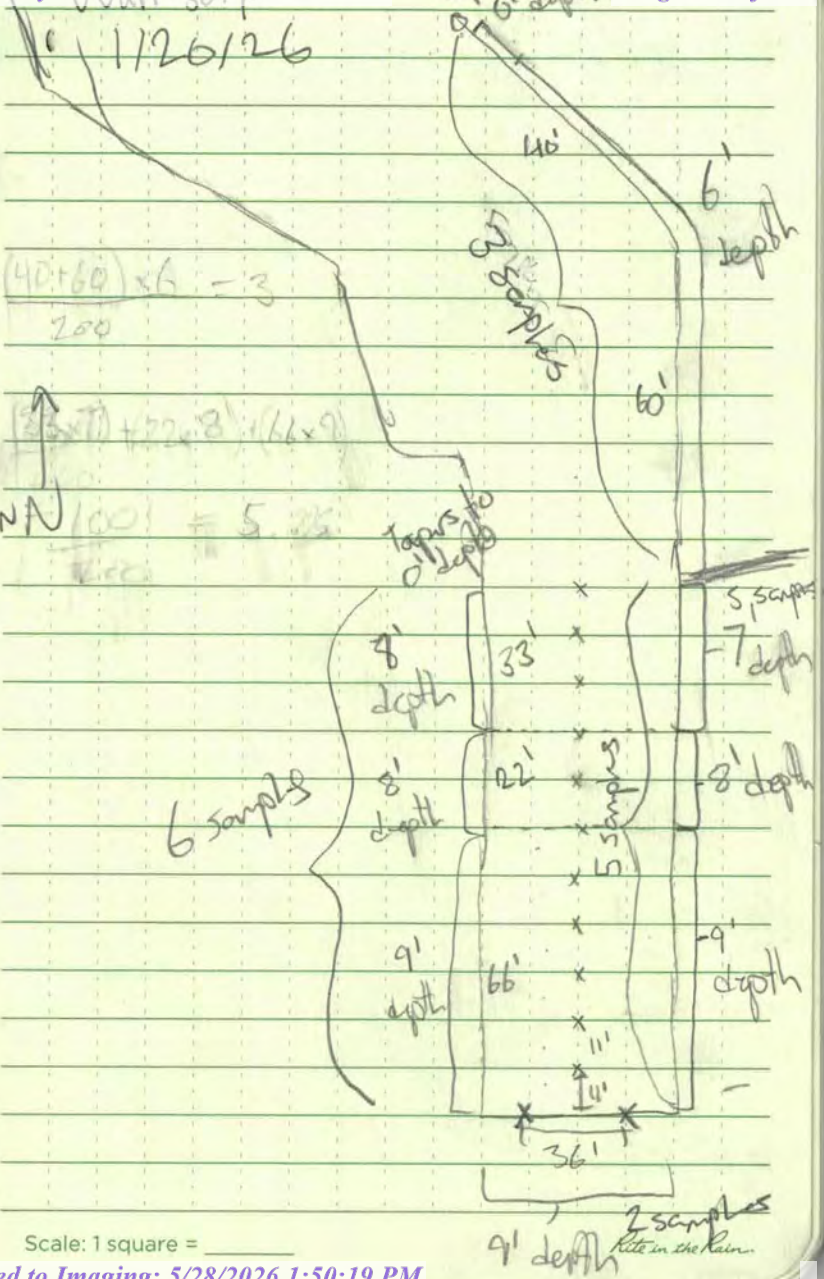 1/26/26
0'
40'
6'
depth
3 samples
(40+60) x 6 = 3
200
60'
(33x7) + (22x8) + (66x9)
N
= 5.25
Tapers to
0' depth
5 samples
7'
depth
8'
depth
33'
8'
depth
22'
8' depth
6 samples
5 samples
9'
depth
66'
9'
depth
11'
4'
36'
2 samples
9' depth
Scale: 1 square =
Rite in the Rain
ed to Imaging: 5/28/2026 1:50:19 PM